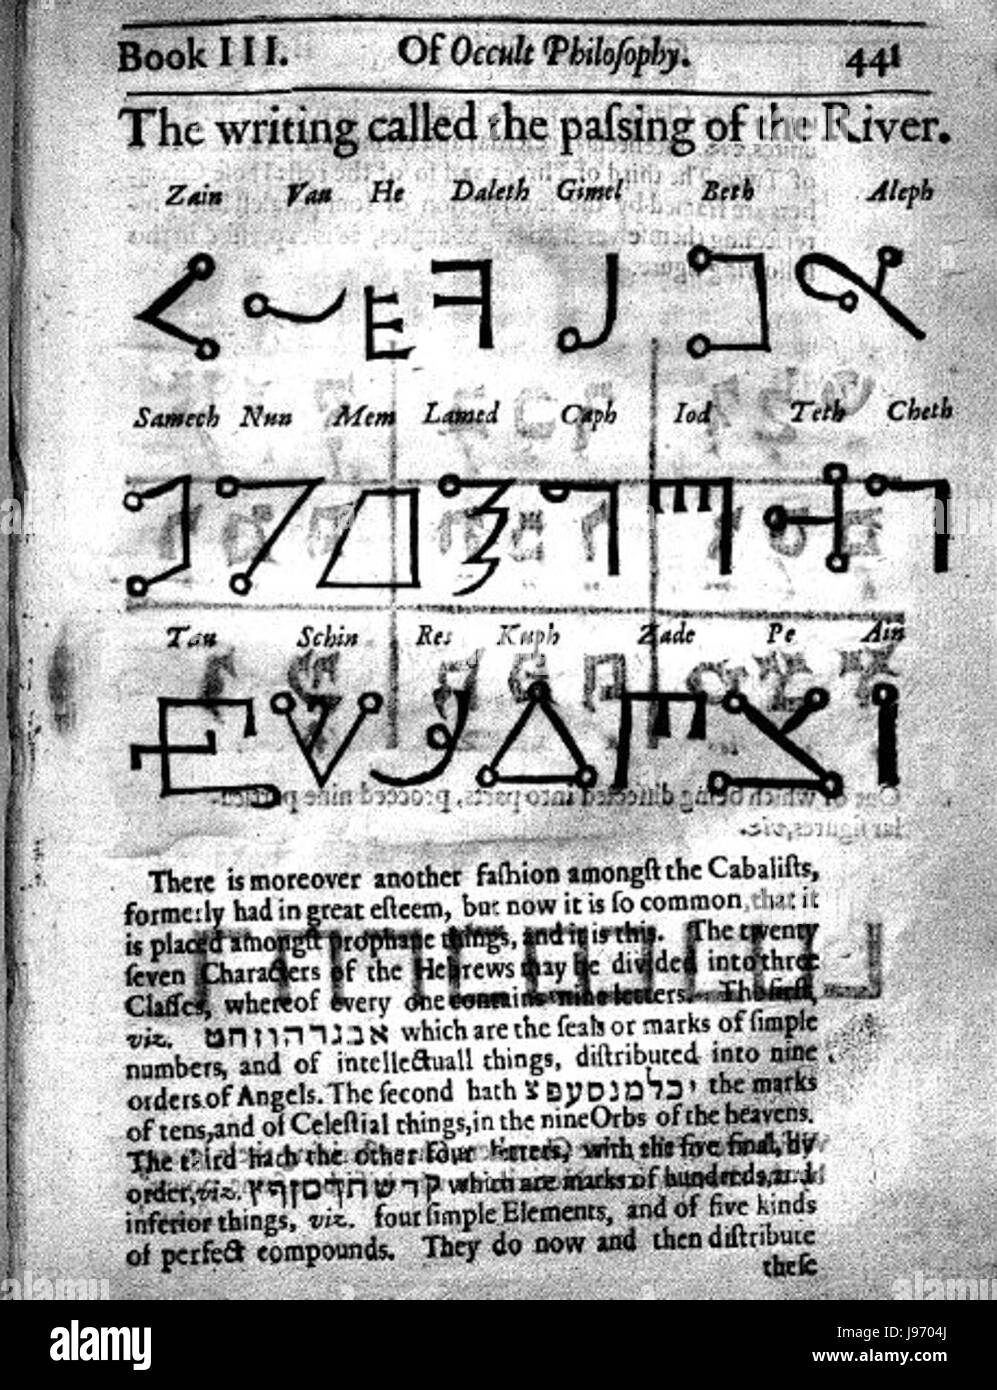 Book III. Of Occult Philoſophy. 441
The writing called the paſsing of the River.
Zain Vau He Daleth Gimel Beth Aleph
Samech Nun Mem Lamed Caph Iod Teth Cheth
Tau Schin Res Kuph Zade Pe Ain
There is moreover another faſhion amongſt the Cabaliſts,
formerly had in great eſteem, but now it is ſo common, that it
is placed amongſt prophane things, and it is this. The twenty
ſeven Characters of the Hebrews may be divided into three
Claſſes, whereof every one contains nine letters. The firſt,
viz. אבגדהוזחט which are the ſeals or marks of ſimple
numbers, and of intellectuall things, diſtributed into nine
orders of Angels. The ſecond hath יכלמנסעפצ the marks
of tens, and of Celeſtial things, in the nine Orbs of the heavens.
The third hath the other four letters, with the five final, by
order, viz. קרשתךםןףץ which are marks of hundreds, and
inferior things, viz. four ſimple Elements, and of five kinds
of perfect compounds. They do now and then diſtribute
theſe
alamy
Image ID: J9704J
www.alamy.com